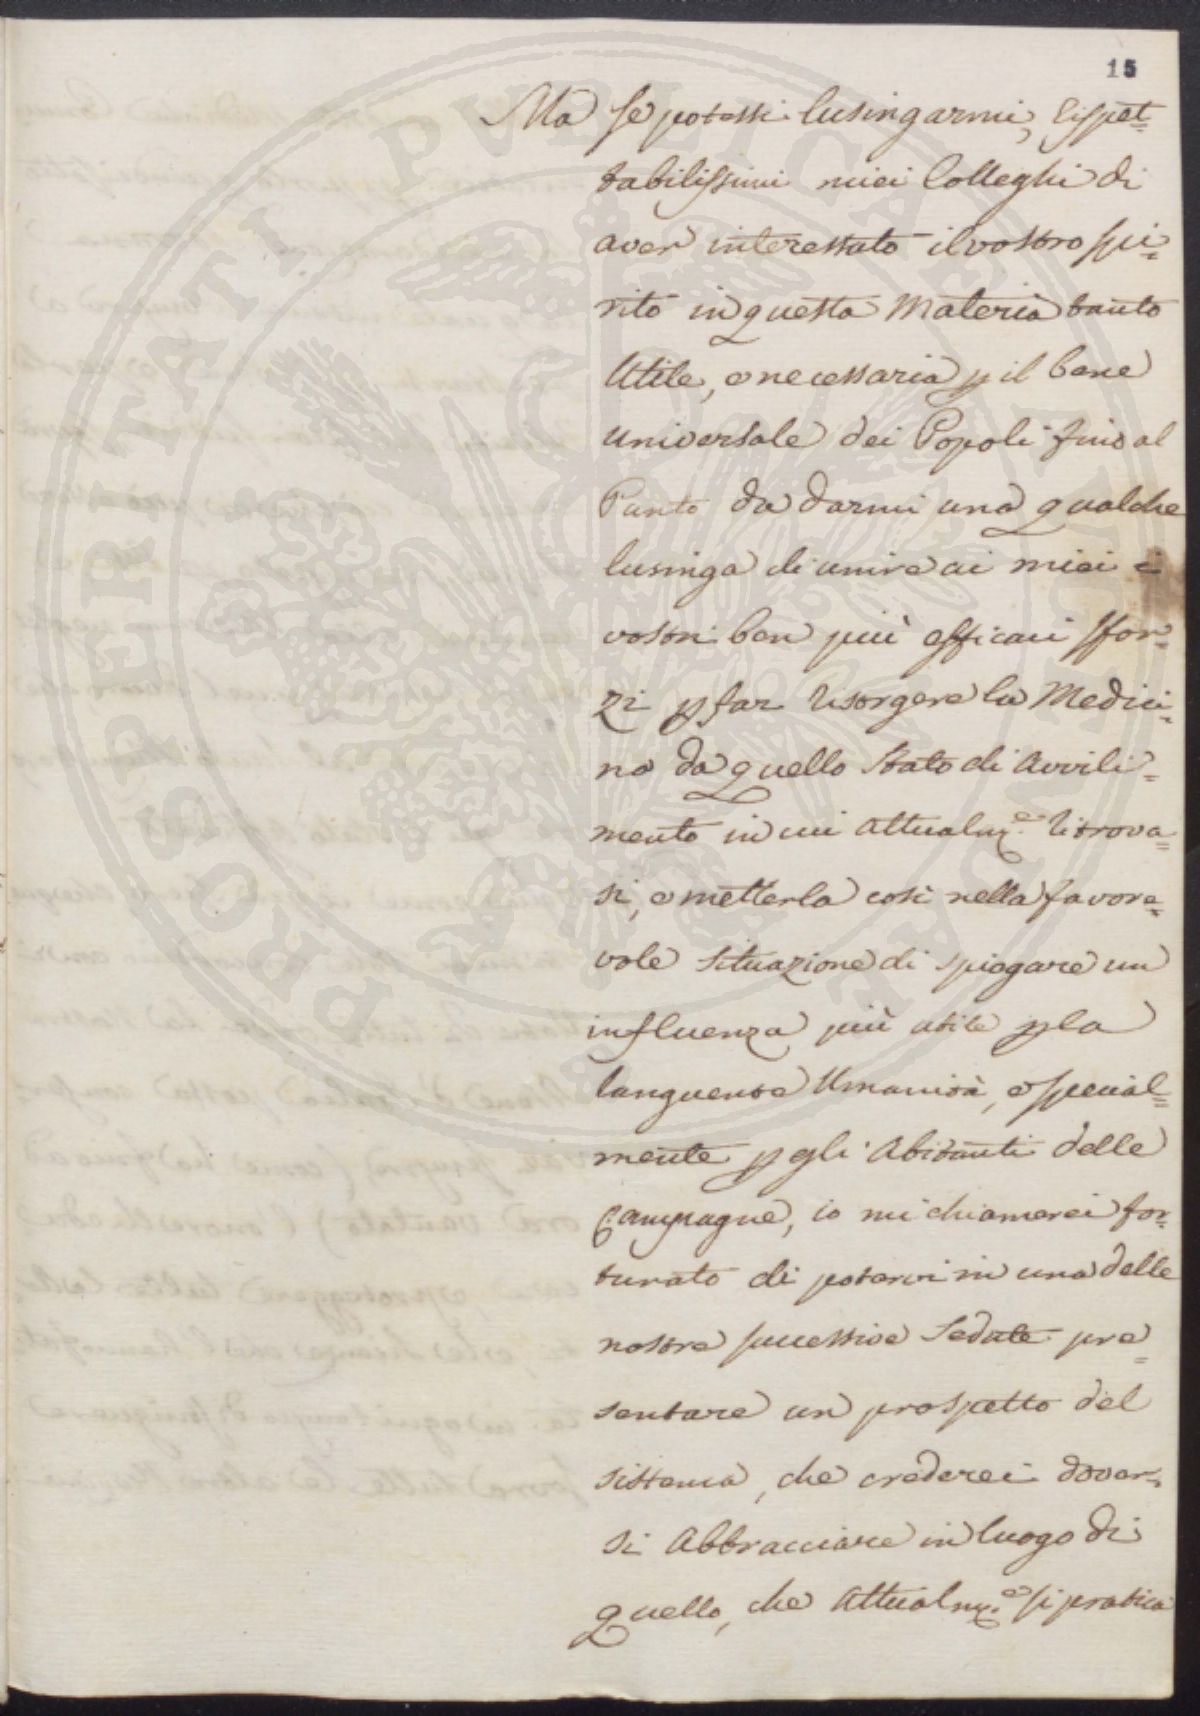 15
Ma se potessi lusingarmi, Rispet=
tabilissimi miei Colleghi di
aver interessato il vostro spi=
rito in questa Materia tanto
Utile, e necessaria p il bene
universale dei Popoli fino al
Punto da darmi una qualche
lusinga di unire ai miei i
vostri ben più efficaci sfor=
zi p far risorgere la Medici=
na da quello Stato di Avvili=
mento in cui Attualm.e ritrova=
si, e metterla così nella favore=
vole situazione di spiegare un
influenza più utile p la
languente Umanità, e special=
mente p gli Abitanti delle
Campagne, io mi chiamerei for=
tunato di potervi in una delle
nostre successive Sedute pre=
sentare un prospetto del
sistema, che crederei dover=
si Abbracciare in luogo di
quello, che Attualm.e si pratica
PROSPERITATI PVBLICAE AVGENDAE